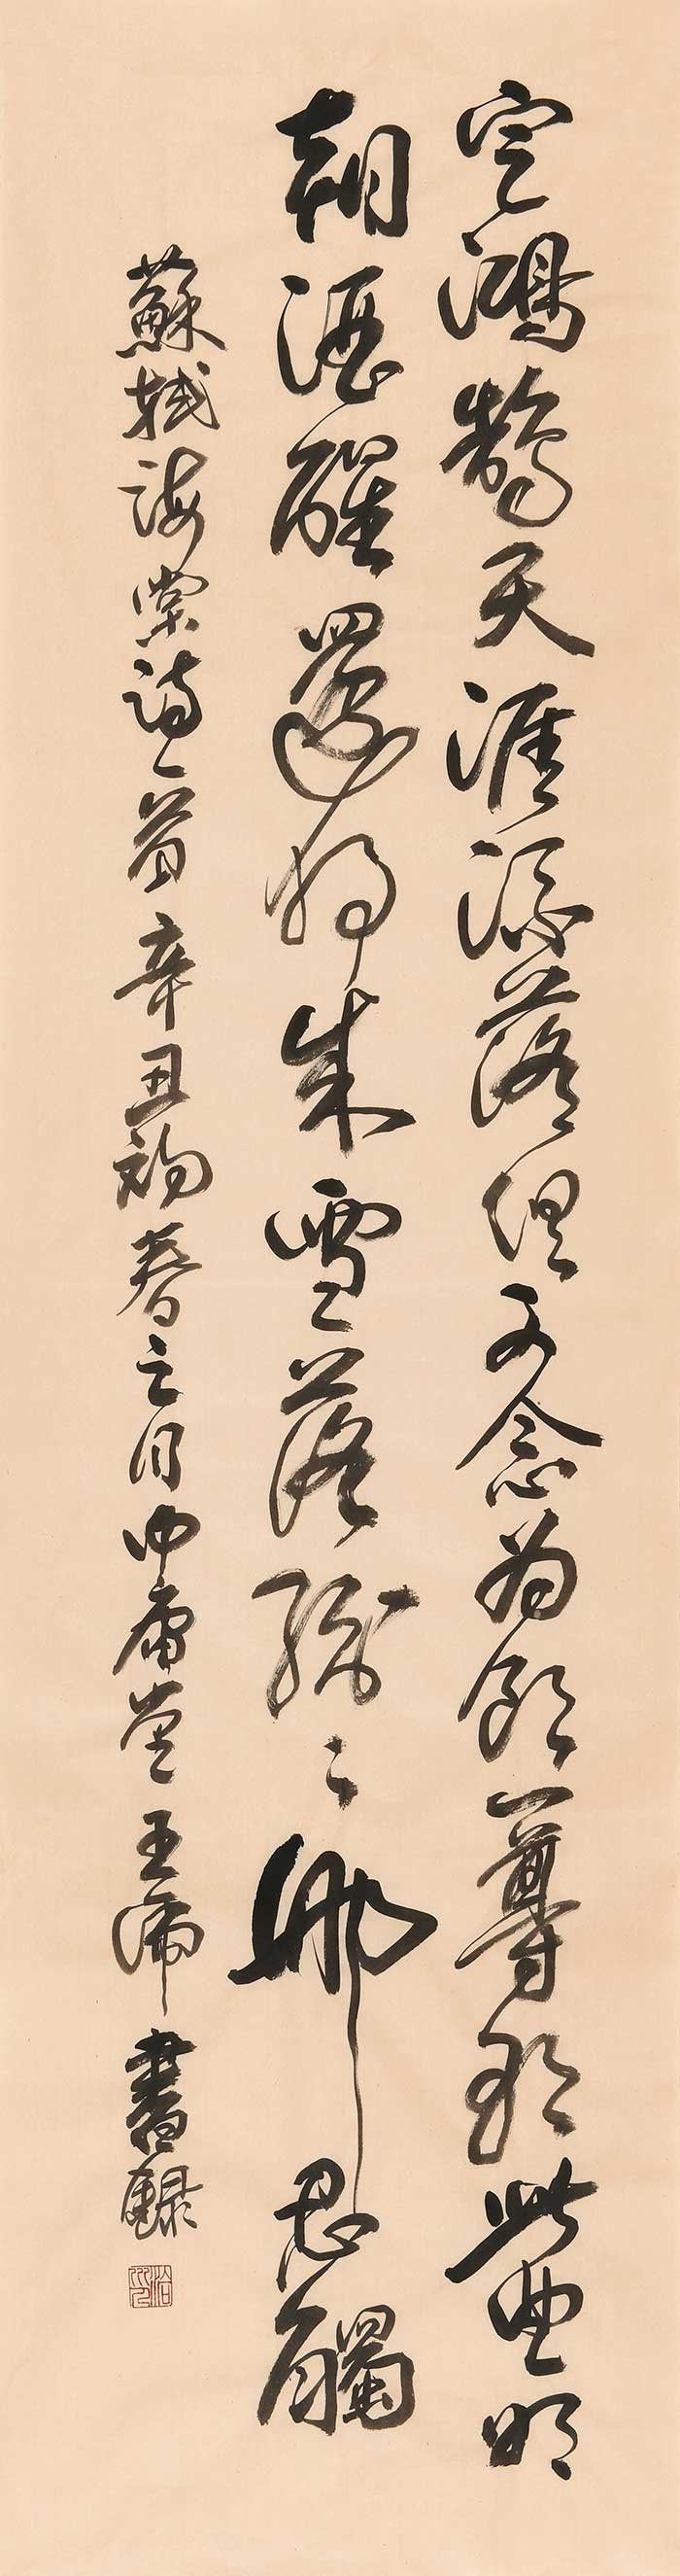 定鴻鵠天涯流落俱可念為飲一尊歌此曲明
朝酒醒還獨來雪落紛々那忍觸
蘇軾海棠詩一首辛丑初春之月中庸堂王書錄